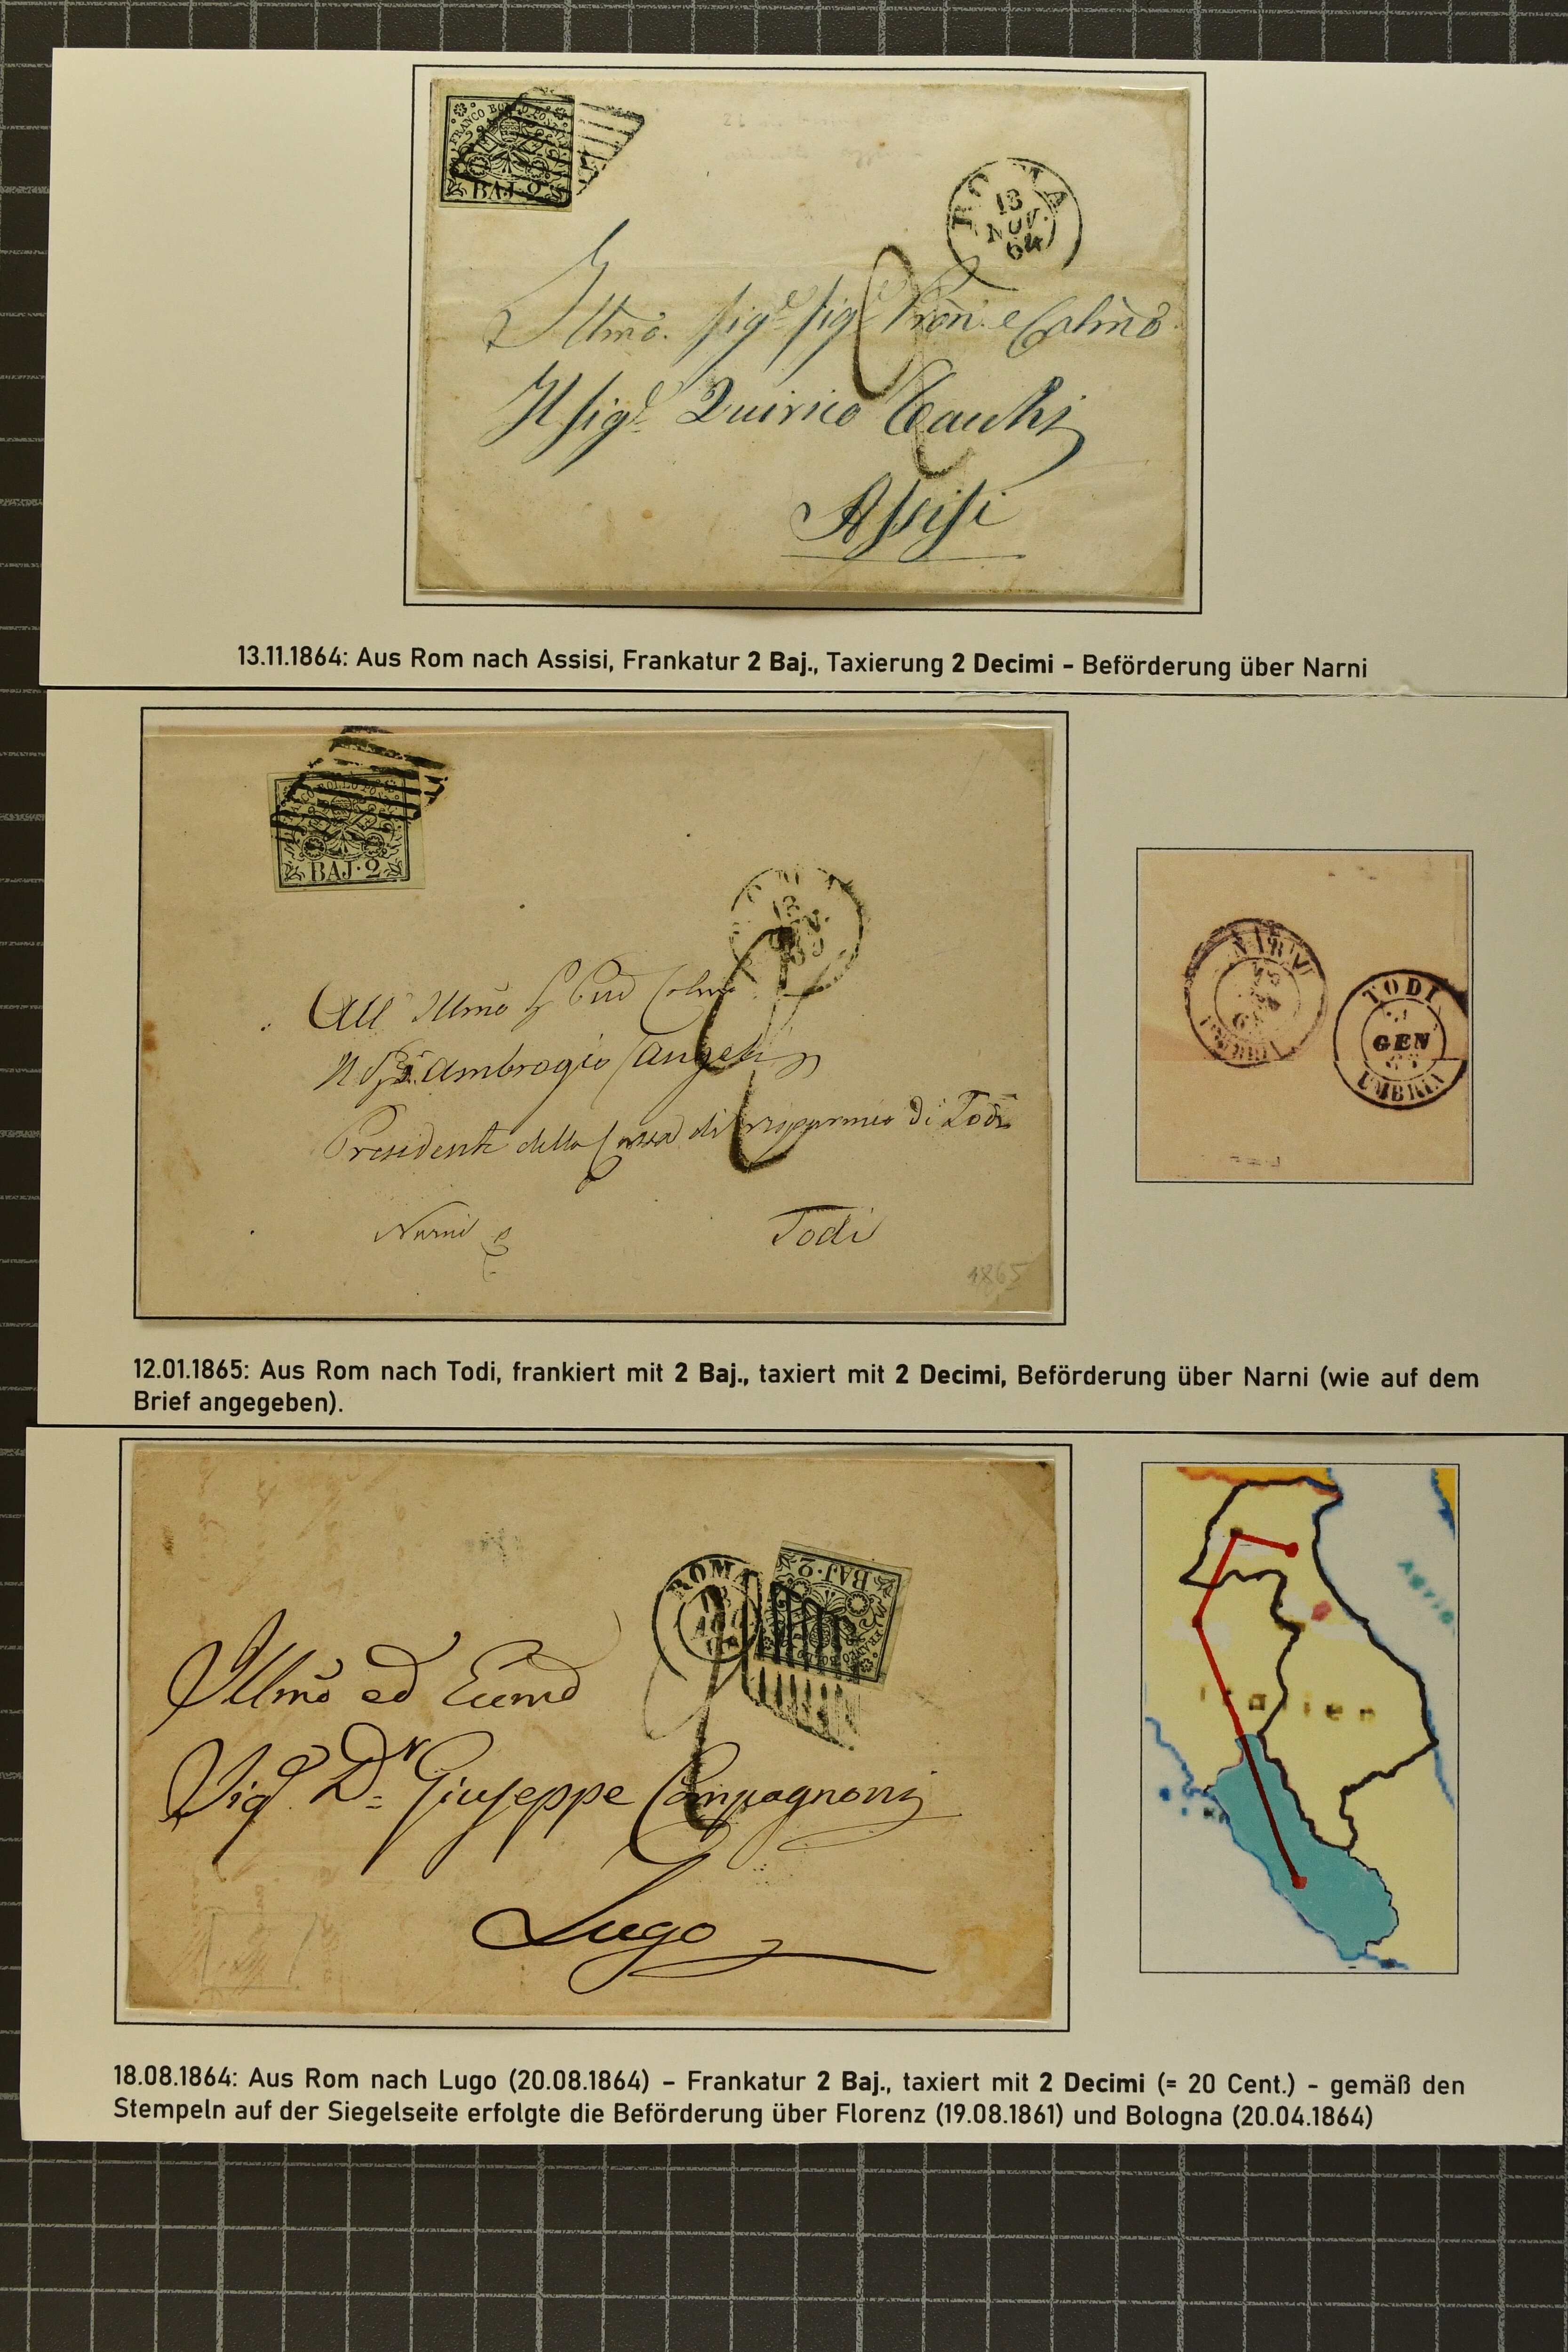 FRANCO BOLLO POSTALE
BAJ·2
ROMA
13
NOV.
64
2
Illmo. Sigr. Sigr. Pron. e Colmo
Il Sigr. Quirico
Assisi
13.11.1864: Aus Rom nach Assisi, Frankatur 2 Baj., Taxierung 2 Decimi - Beförderung über Narni
BAJ·2
2
All' Illmo
Ambrogio
Presidente della Cassa di risparmio di Todi
Narni
Todi
1865
NARNI
UMBRIA
TODI
GEN
UMBRIA
12.01.1865: Aus Rom nach Todi, frankiert mit 2 Baj., taxiert mit 2 Decimi, Beförderung über Narni (wie auf dem
Brief angegeben).
ROMA
18
AGO
BAJ·2
2
Illmo ed
Sigr. Dr. Giuseppe Compagnoni
Lugo
Adria
Italien
18.08.1864: Aus Rom nach Lugo (20.08.1864) – Frankatur 2 Baj., taxiert mit 2 Decimi (= 20 Cent.) - gemäß den
Stempeln auf der Siegelseite erfolgte die Beförderung über Florenz (19.08.1861) und Bologna (20.04.1864)